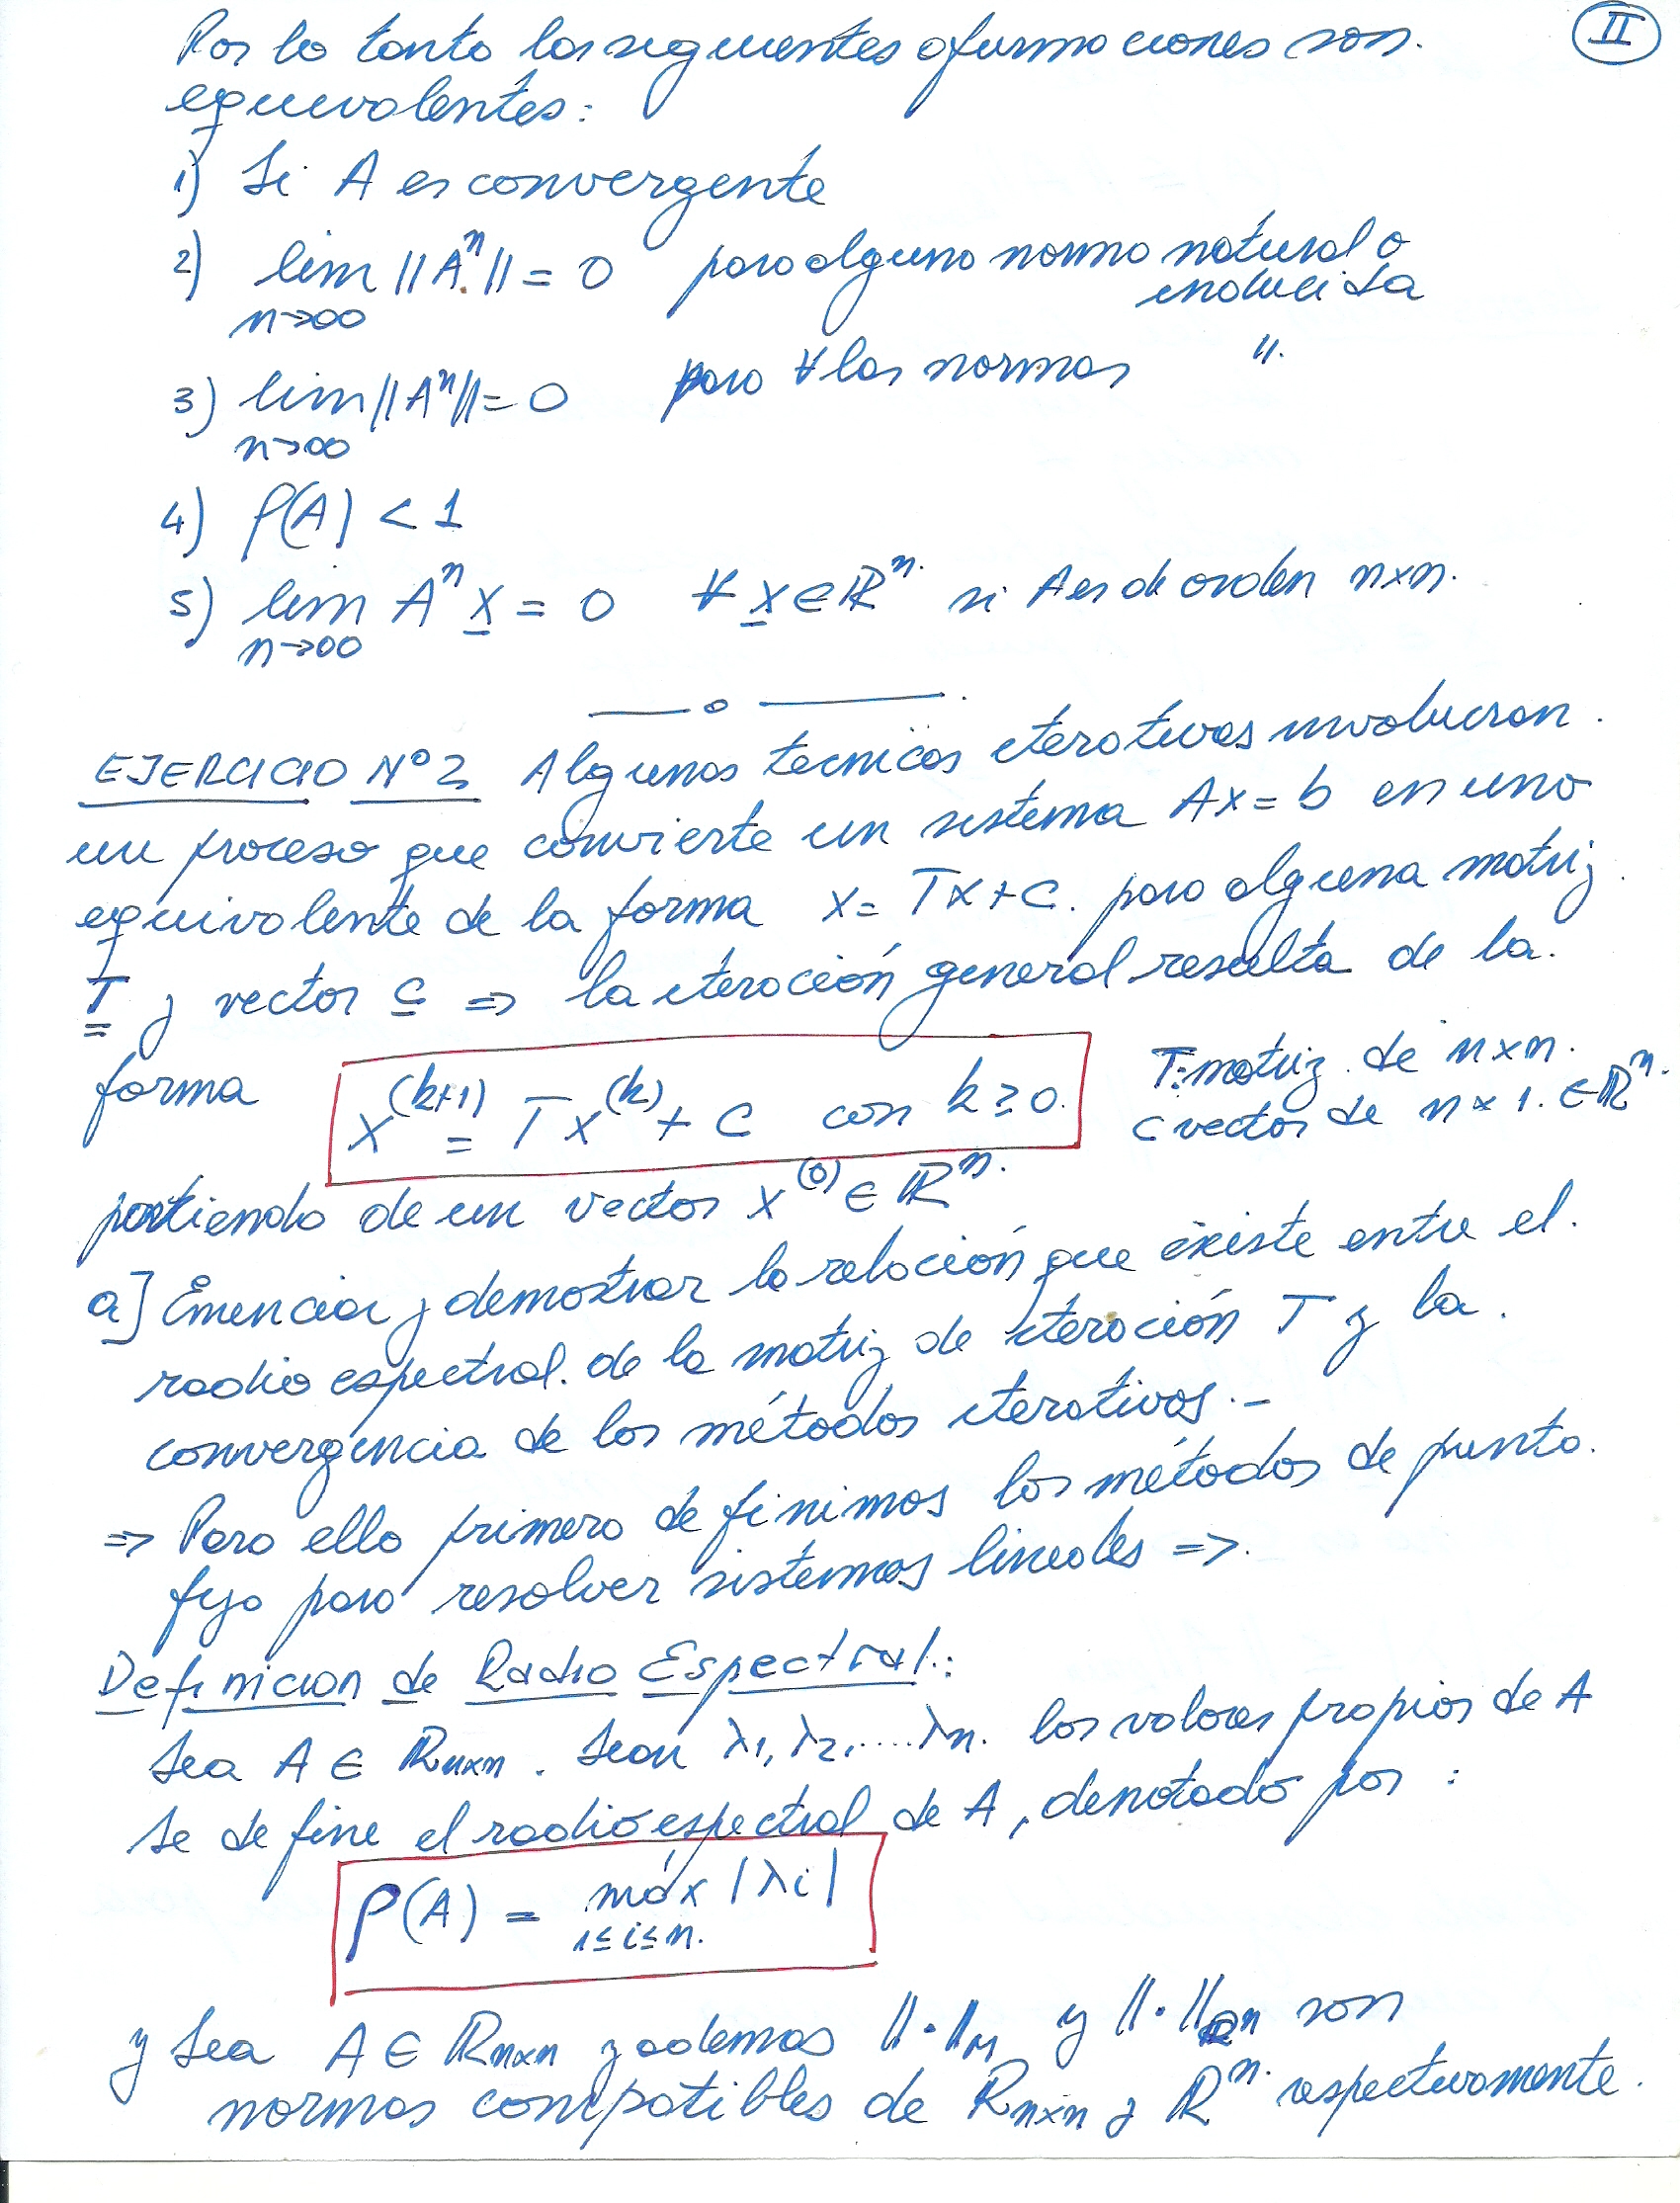 II
Por lo tanto las siguientes afirmaciones son.
equivalentes:
1) Si A es convergente
2) lim ||Aⁿ|| = 0 para alguna norma natural o
n→∞ inducida
3) lim ||Aⁿ|| = 0 para ∀ las normas ".
n→∞
4) ρ(A) < 1
5) lim Aⁿ x = 0 ∀ x ∈ ℝⁿ. si A es de orden n×n.
n→∞
EJERCICIO Nº2 Algunas tecnicas iterativas involucran.
un proceso que convierte un sistema Ax = b en uno
equivalente de la forma x = Tx + c. para alguna matriz.
T y vector c ⇒ la iteración general resulta de la.
forma x^(k+1) = T x^(k) + c con k ≥ 0. T: matriz de n×n.
c vector de n×1. ∈ ℝⁿ.
partiendo de un vector x^(0) ∈ ℝⁿ.
a] Enunciar y demostrar la relación que existe entre el.
radio espectral. de la matriz de iteración T y la.
convergencia de los métodos iterativos.-
⇒ Para ello primero definimos los métodos de punto.
fijo para resolver sistemas lineales ⇒.
Definicion de Radio Espectral.:
Sea A ∈ ℝn×n. Sean λ1, λ2, .... λn. los valores propios de A
se define el radio espectral de A, denotado por :
ρ(A) = máx |λi|
1≤i≤n.
y sea A ∈ ℝn×n y ademas ||·||M y ||·|| son
normas compatibles de ℝn×n y ℝⁿ. respectivamente.